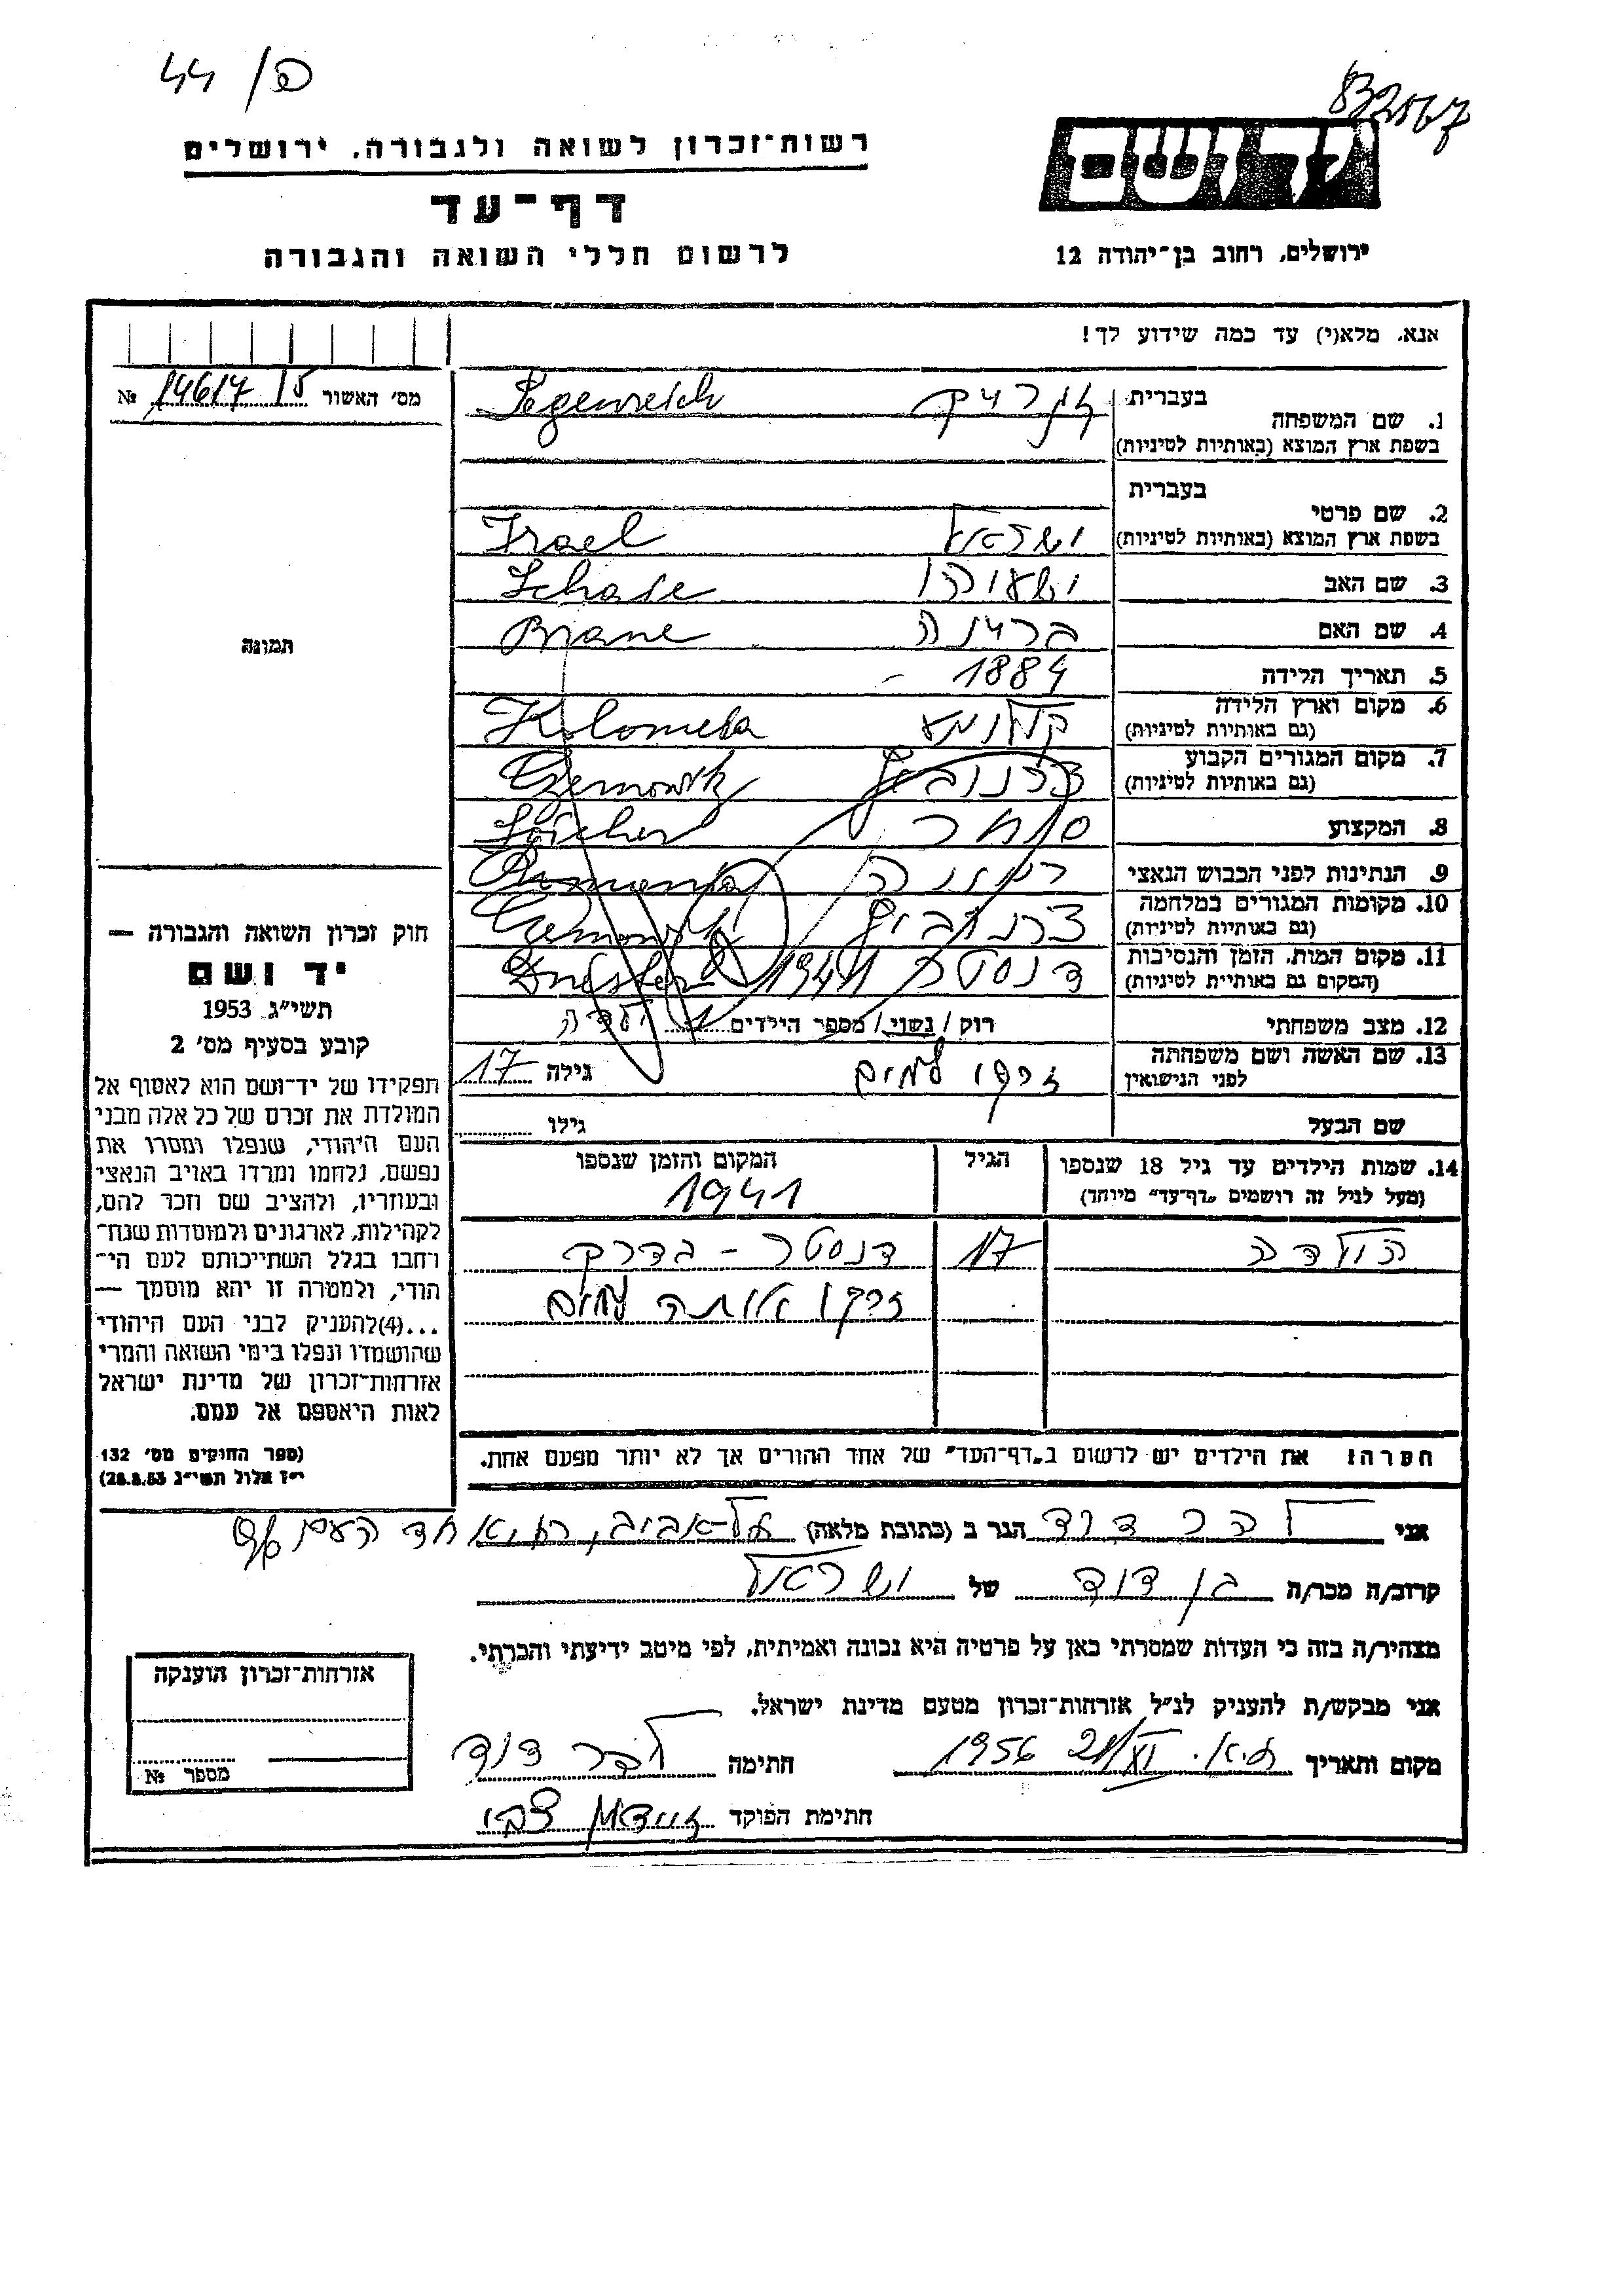 44/פ
832067
רשות־זכרון לשואה ולגבורה. ירושלים
דף־עד
לרשום חללי השואה והגבורה
יד ושם
ירושלים, רחוב בן־יהודה 12
אנא, מלא(י) עד כמה שידוע לך!
מס׳ האשור 14617 №
1. שם המשפחה
בעברית
בשפת ארץ המוצא (באותיות לטיניות)
Segenreich
2. שם פרטי
בעברית
בשפת ארץ המוצא (באותיות לטיניות)
ישראל Israel
3. שם האב ישעיהו Schaje
4. שם האם בריינה Briane
5. תאריך הלידה 1884 -
6. מקום וארץ הלידה
(גם באותיות לטיניות)
Kolomea
7. מקום המגורים הקבוע
(גם באותיות לטיניות)
צרנוביץ Czernowitz
8. המקצוע סוחר
9. הנתינות לפני הכבוש הנאצי רומניה
10. מקומות המגורים במלחמה
(גם באותיות לטיניות)
צרנוביץ Czernowitz
11. מקום המות, הזמן והנסיבות
(המקום גם באותיית לטיניות)
דנסטר 1941 Dniester
12. מצב משפחתי רוק / נשוי / מספר הילדים 1 ילדה
13. שם האשה ושם משפחתה
לפני הנישואין
זרקו למים גילה 17
שם הבעל גילו
14. שמות הילדים עד גיל 18 שנספו
(מעל לגיל זה רושמים „דף־עד״ מיוחד)
הגיל
המקום והזמן שנספו
1941
הילדה 17 דנסטר - בדרך
זרקו אותה למים
תמונה
חוק זכרון השואה והגבורה —
יד ושם
תשי״ג 1953
קובע בסעיף מס׳ 2
תפקידו של יד־ושם הוא לאסוף אל
המולדת את זכרם של כל אלה מבני
העם היהודי, שנפלו ומסרו את
נפשם, נלחמו ומרדו באויב הנאצי
ובעוזריו, ולהציב שם וזכר להם,
לקהילות, לארגונים ולמוסדות שנח־
רחבו בגלל השתייכותם לעם הי־
הודי, ולמטרה זו יהא מוסמך —
...(4)להעניק לבני העם היהודי
שהושמדו ונפלו בימי השואה והמרי
אזרחות־זכרון של מדינת ישראל
לאות היאספם אל עמם.
(ספר החוקים מס׳ 132
י״ז אלול תשי״ג 28.8.53)
הערה: את הילדים יש לרשום ב„דף־העד״ של אחד ההורים אך לא יותר מפעם אחת.
אני להר דוד הגר ב (כתובת מלאה) תל־אביב, אחד העם
קרוב/ה מכר/ה בן דוד של ישראל
מצהיר/ה בזה כי העדות שמסרתי כאן על פרטיה היא נכונה ואמיתית, לפי מיטב ידיעתי והכרתי.
אני מבקש/ת להעניק לנ״ל אזרחות־זכרון מטעם מדינת ישראל.
מקום ותאריך ת.א. 1956 חתימה להר דוד
חתימת הפוקד צבי
אזרחות־זכרון הוענקה
מספר №